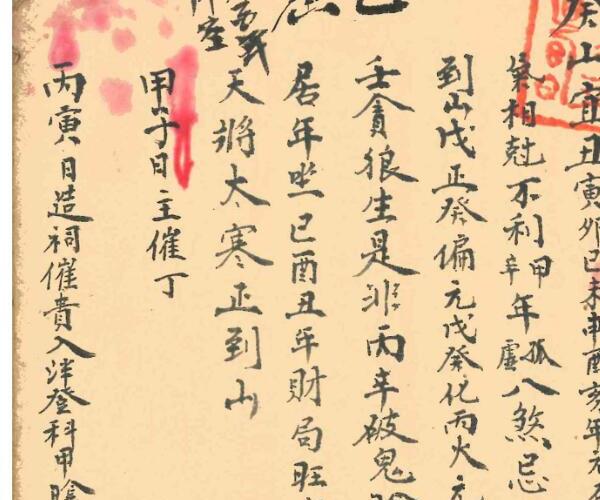 山宜丑寅卯巳未申酉亥年
相尅不利甲辛年孤虛八煞忌
到山戊正癸偏元戊癸化丙火
壬貪狼生是非丙辛破鬼
居年坐巳酉丑年財局旺
天將大寒正到山
甲子日主催丁
丙寅日造祠催貴入泮登科甲